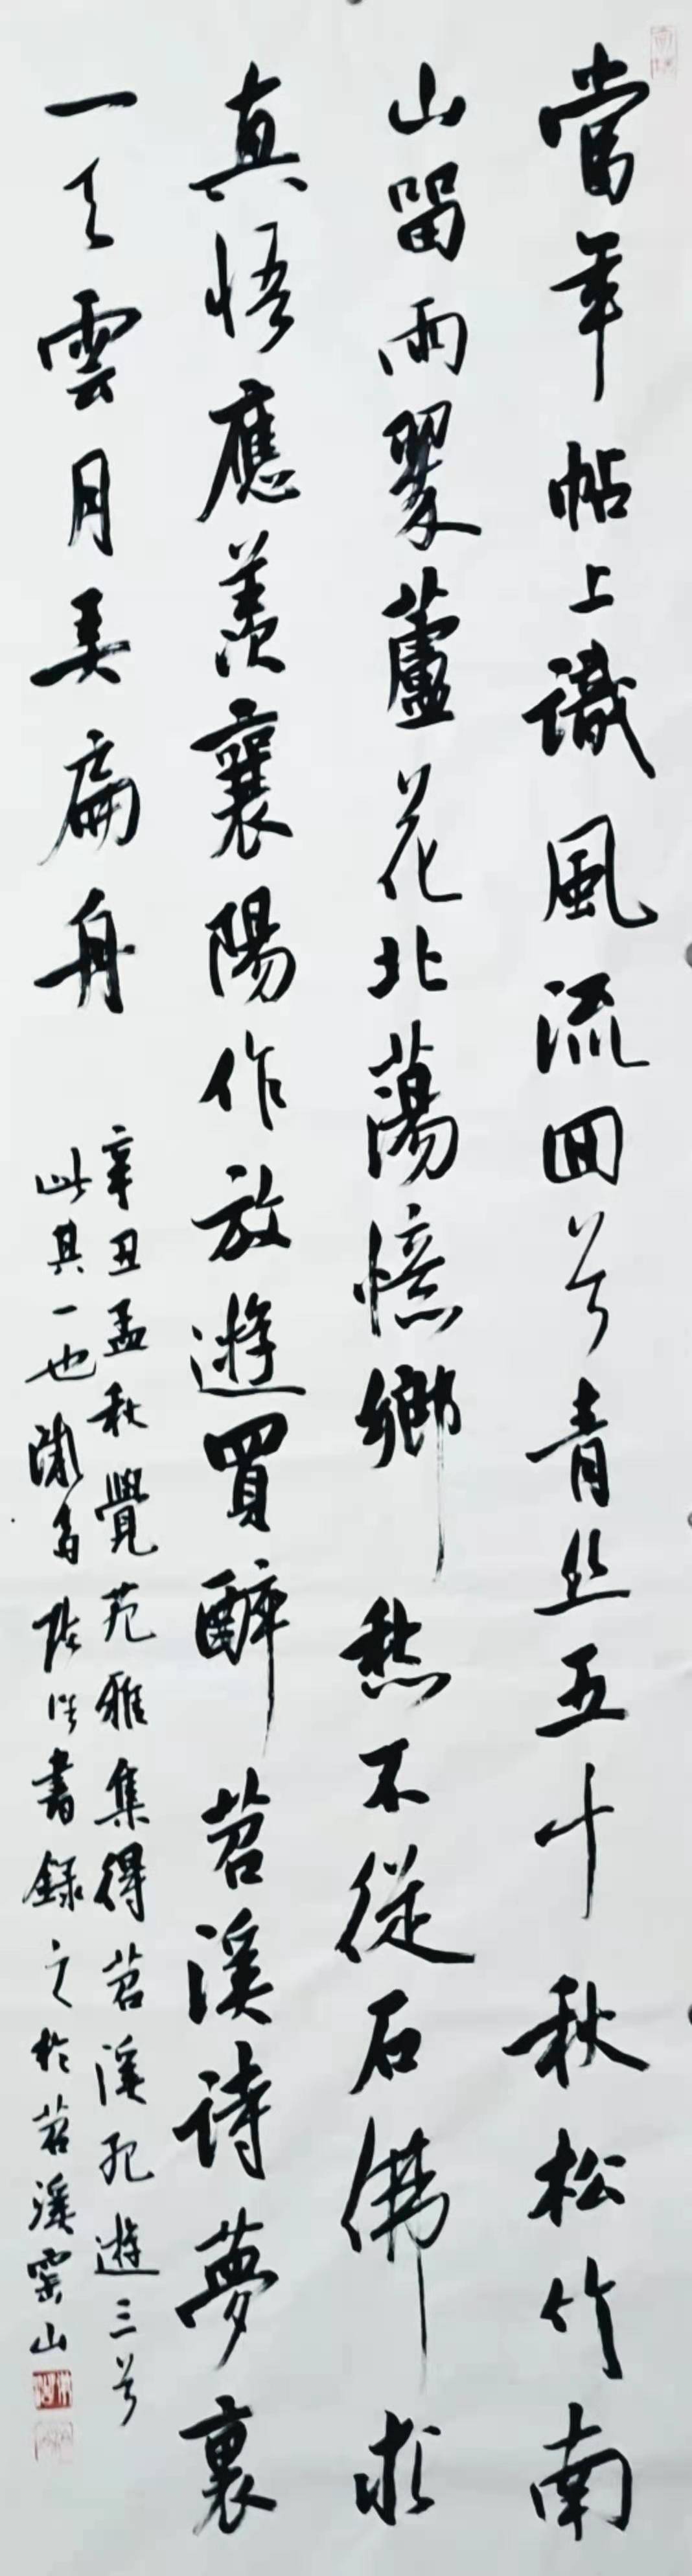 當年帖上識風流回首青絲五十秋松竹南
山留雨翠蘆花北蕩憶鄉愁不從石佛求
真悟應羨襄陽作放遊買醉苕溪詩夢裏
一天雲月弄扁舟
辛丑孟秋覺苑雅集得苕溪紀遊三首
此其一也 書錄之於苕溪雲山